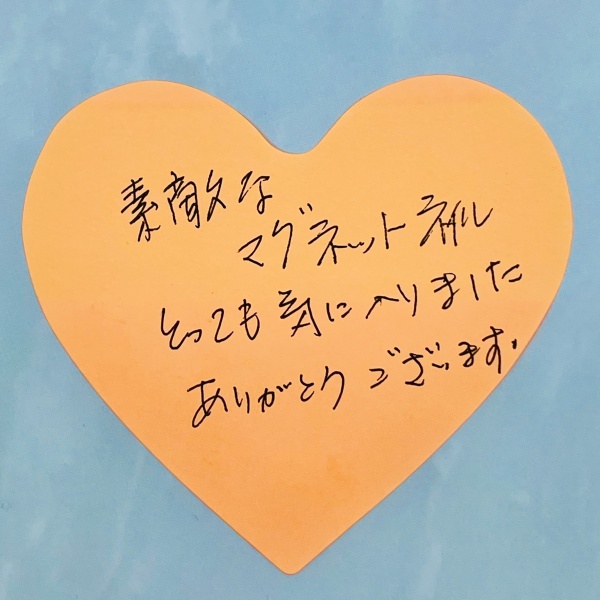 素敵な
マグネットネイル
とっても気に入りました
ありがとうございます。